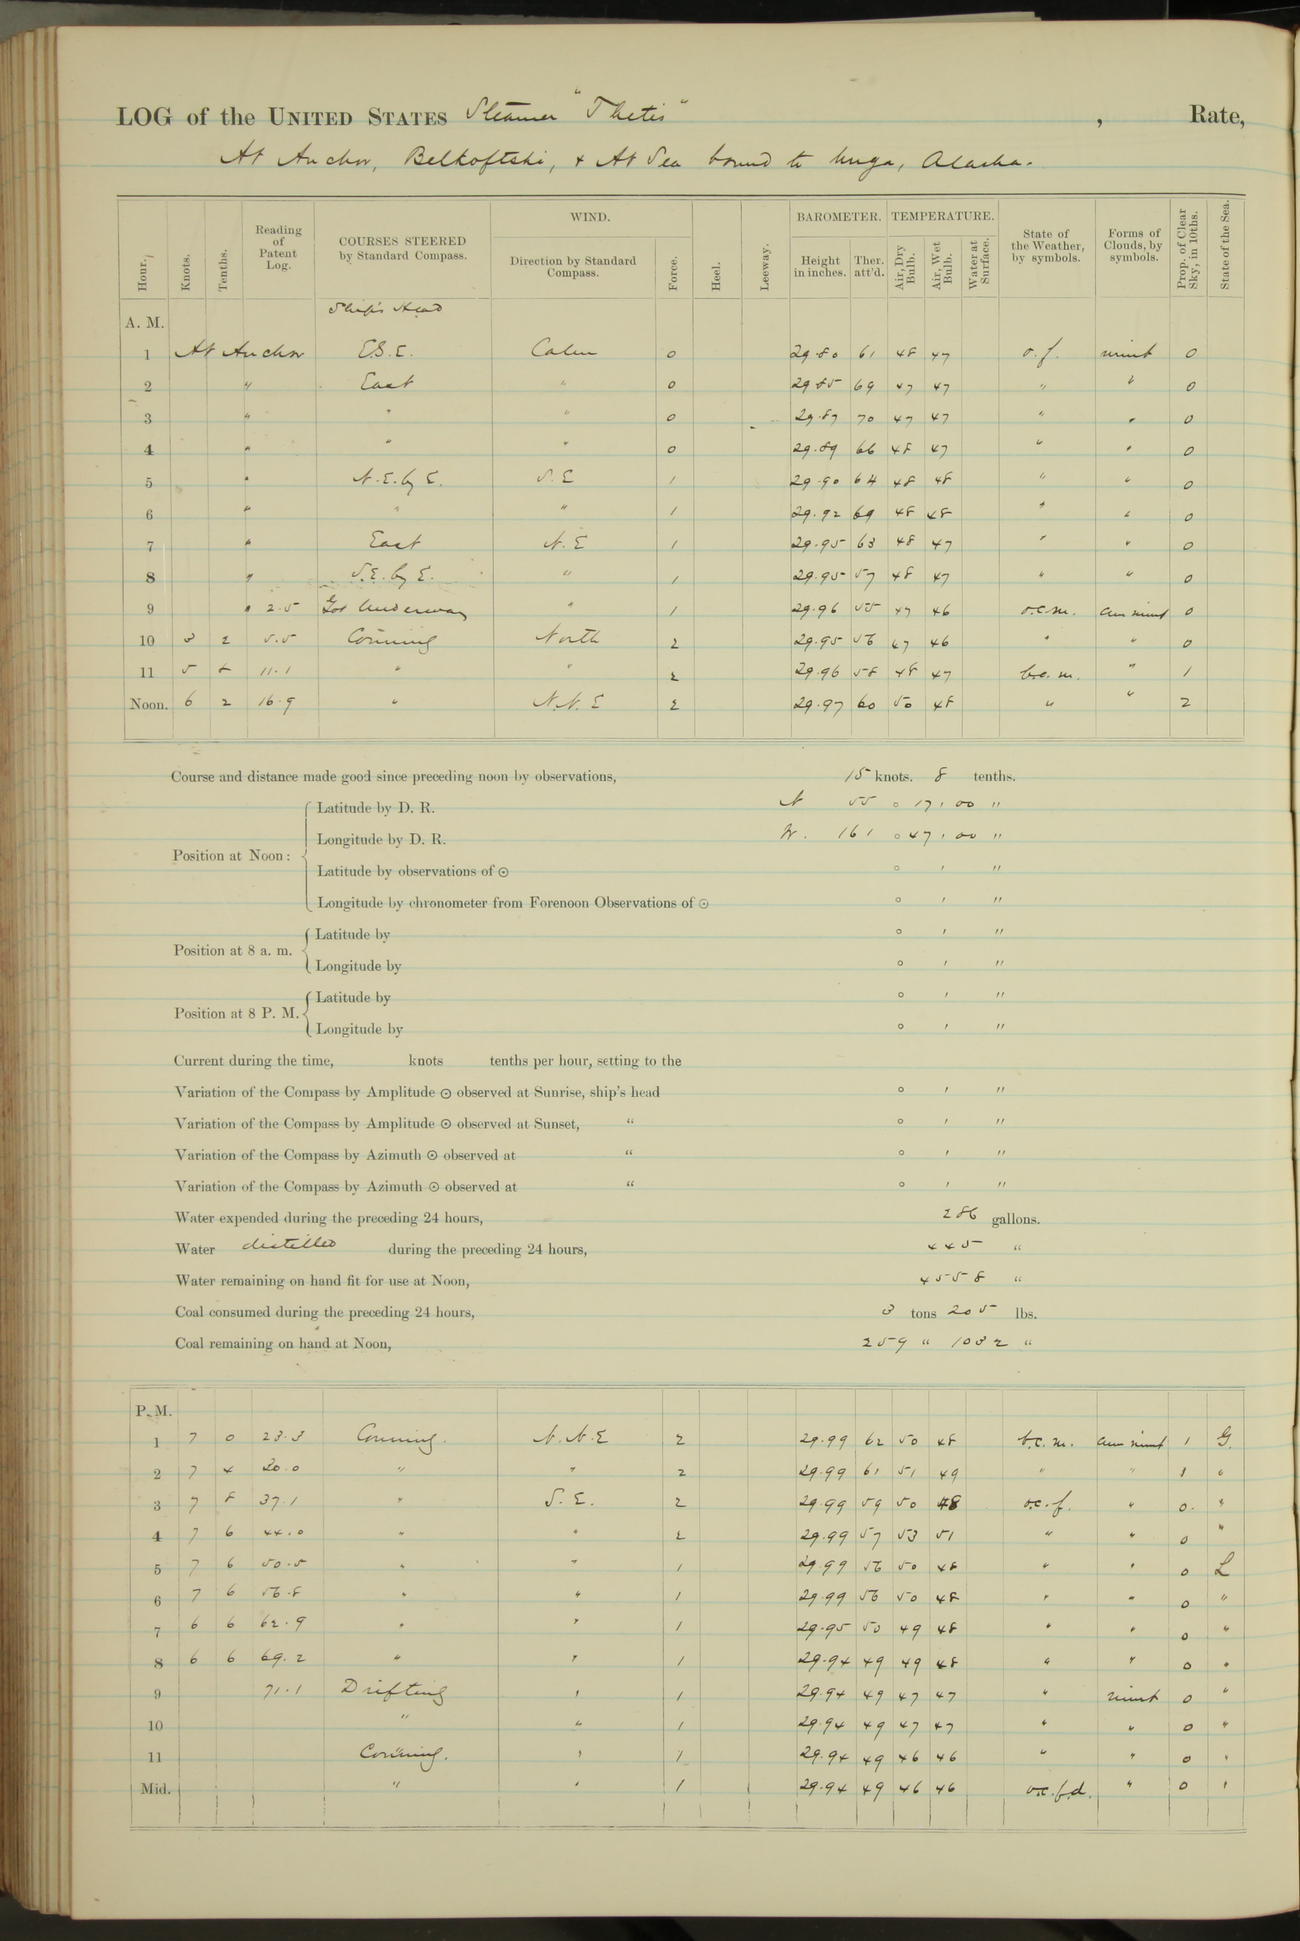 LOG of the UNITED STATES Steamer "Thetis" , Rate,
At Anchor, Belkoffski, & At Sea bound to Unga, Alaska.
Hour. Knots. Tenths. Reading of Patent Log. COURSES STEERED by Standard Compass. WIND. Direction by Standard Compass. Force. Heel. Leeway. BAROMETER. Height in inches. Ther. att'd. TEMPERATURE. Air, Dry Bulb. Air, Wet Bulb. Water at Surface. State of the Weather, by symbols. Forms of Clouds, by symbols. Prop. of Clear Sky, in 10ths. State of the Sea.
Ship's Head
A. M.
1 At Anchor E.S.E. Calm 0 29.80 61 48 47 o.f. nimb 0
2 " East " 0 29.85 69 47 47 " " 0
3 " " " 0 29.87 70 47 47 " " 0
4 " " " 0 29.89 66 48 47 " " 0
5 " N.E. by E. S.E 1 29.90 64 48 48 " " 0
6 " " " 1 29.92 69 48 48 " " 0
7 " East N.E 1 29.95 63 48 47 " " 0
8 " S.E. by E. " 1 29.95 57 48 47 " " 0
9 " 2.5 Got Underway " 1 29.96 55 47 46 o.c.m. cum nimb 0
10 3 2 5.5 Conning North 2 29.95 56 47 46 " " 0
11 5 4 11.1 " " 2 29.96 58 48 47 b.c.m. " 1
Noon. 6 2 16.9 " N.N.E 2 29.97 60 50 48 " " 2
Course and distance made good since preceding noon by observations, 15 knots. 8 tenths.
Position at Noon:
Latitude by D. R. N 55 ° 17 ' 00 "
Longitude by D. R. W. 161 ° 47 ' 00 "
Latitude by observations of ⊙ ° ' "
Longitude by chronometer from Forenoon Observations of ⊙ ° ' "
Position at 8 a. m.
Latitude by ° ' "
Longitude by ° ' "
Position at 8 P. M.
Latitude by ° ' "
Longitude by ° ' "
Current during the time, knots tenths per hour, setting to the
Variation of the Compass by Amplitude ⊙ observed at Sunrise, ship's head ° ' "
Variation of the Compass by Amplitude ⊙ observed at Sunset, " ° ' "
Variation of the Compass by Azimuth ⊙ observed at " ° ' "
Variation of the Compass by Azimuth ⊙ observed at " ° ' "
Water expended during the preceding 24 hours, 286 gallons.
Water distilled during the preceding 24 hours, 445 "
Water remaining on hand fit for use at Noon, 4558 "
Coal consumed during the preceding 24 hours, 3 tons 205 lbs.
Coal remaining on hand at Noon, 259 " 1032 "
P. M.
1 7 0 23.3 Conning. N.N.E 2 29.99 62 50 48 b.c.m. cum nimb 1 G.
2 7 4 30.0 " " 2 29.99 61 51 49 " " 1 "
3 7 8 37.1 " S.E. 2 29.99 59 50 48 o.c.f. " 0. "
4 7 6 44.0 " " 2 29.99 57 53 51 " " 0 "
5 7 6 50.5 " " 1 29.99 56 50 48 " " 0 L
6 7 6 56.8 " " 1 29.99 56 50 48 " " 0 "
7 6 6 62.9 " " 1 29.95 50 49 48 " " 0 "
8 6 6 69.2 " " 1 29.94 49 49 48 " " 0 "
9 71.1 Drifting " 1 29.94 49 47 47 " nimb 0 "
10 " " 1 29.94 49 47 47 " " 0 "
11 Conning. " 1 29.94 49 46 46 " " 0 "
Mid. " " 1 29.94 49 46 46 o.c.f.d. " 0 "